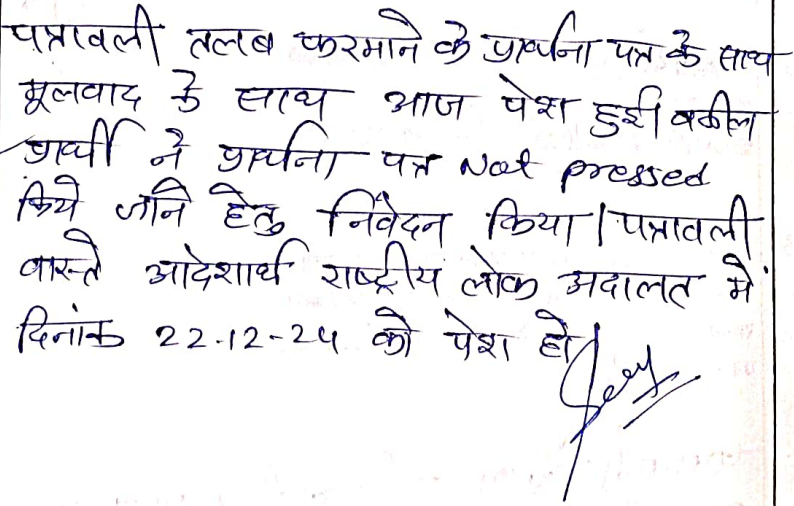 पत्रावली तलब फरमाने के प्रार्थना पत्र के साथ
मूलवाद के साथ आज पेश हुई। वकील
प्रार्थी ने प्रार्थना पत्र Not pressed
किये जाने हेतु निवेदन किया। पत्रावली
वास्ते आदेशार्थ राष्ट्रीय लोक अदालत में
दिनांक 22-12-24 को पेश हो